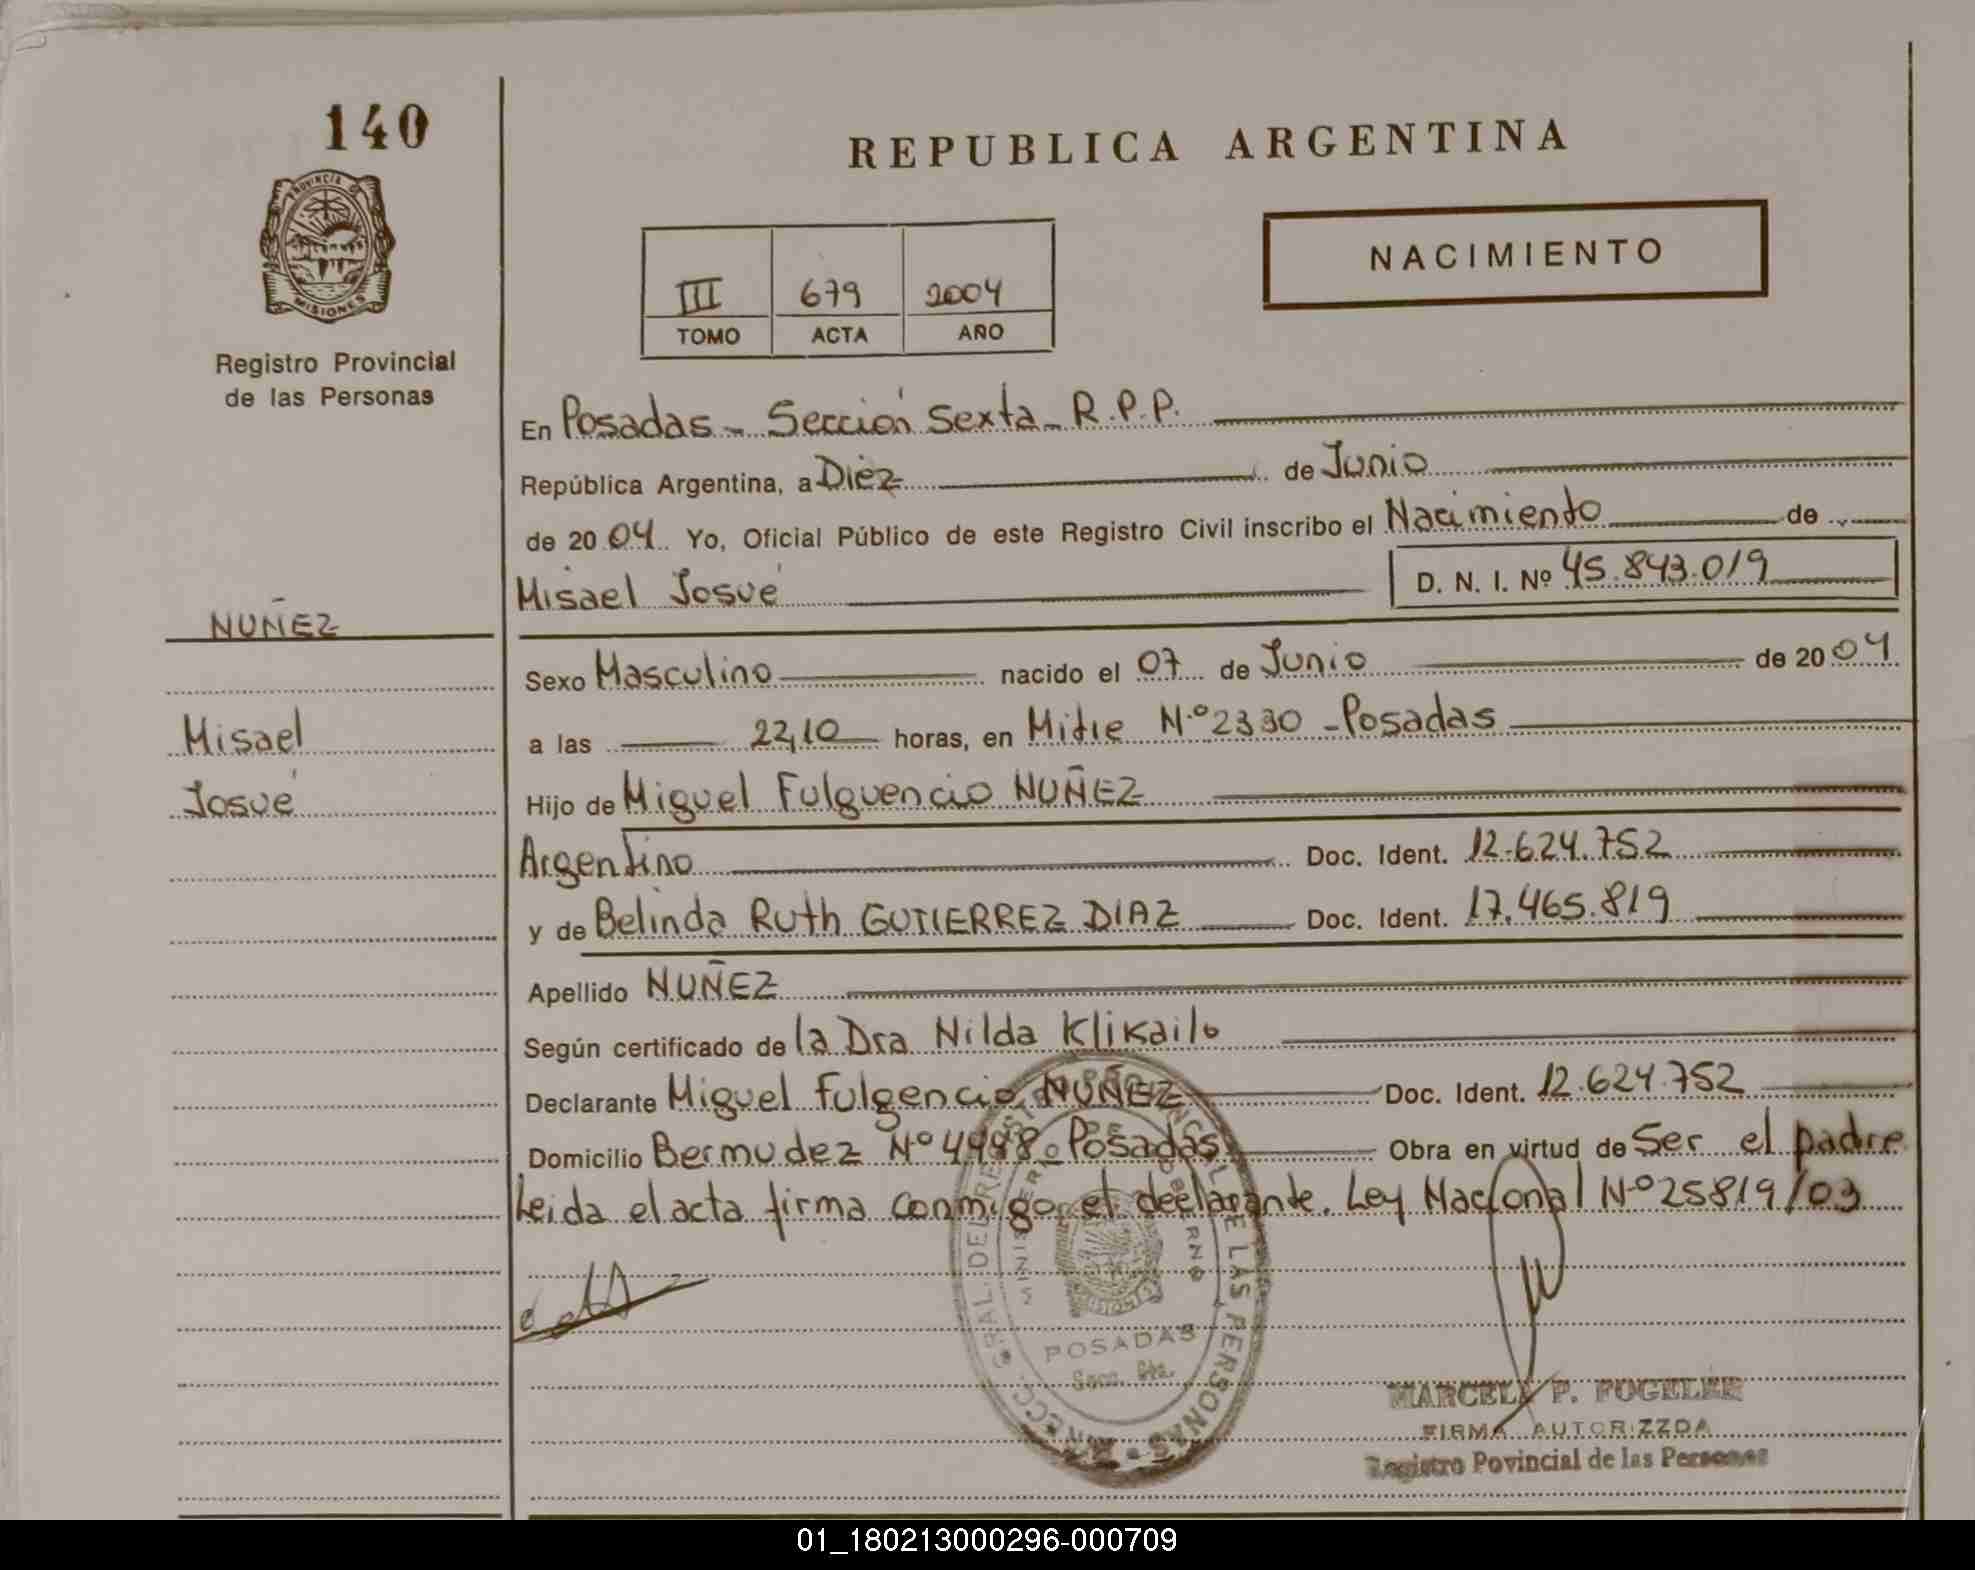 140
PROVINCIA DE
MISIONES
Registro Provincial
de las Personas
NUÑEZ
Misael
Josué
REPUBLICA ARGENTINA
NACIMIENTO
III 679 2004
TOMO ACTA AÑO
En Posadas - Sección Sexta - R.P.P.
República Argentina, a Diez de Junio
de 2004. Yo, Oficial Público de este Registro Civil inscribo el Nacimiento de
Misael Josué D. N. I. Nº 45.843.019
Sexo Masculino nacido el 07 de Junio de 2004
a las 22,10 horas, en Mitre N.º 2330 - Posadas
Hijo de Miguel Fulguencio NUÑEZ
Argentino Doc. Ident. 12.624.752
y de Belinda Ruth GUTIERREZ DIAZ Doc. Ident. 17.465.819
Apellido NUÑEZ
Según certificado de la Dra Nilda Klikailo
Declarante Miguel Fulgencio NUÑEZ Doc. Ident. 12.624.752
Domicilio Bermudez Nº Posadas Obra en virtud de Ser el padre
Leida el acta firma conmigo el declarante. Ley Nacional Nº 25819/03
POSADAS
Secc. 6ta.
MARCELA P. FOGELER
FIRMA AUTORIZZDA
Registro Povincial de las Personas
01_180213000296-000709